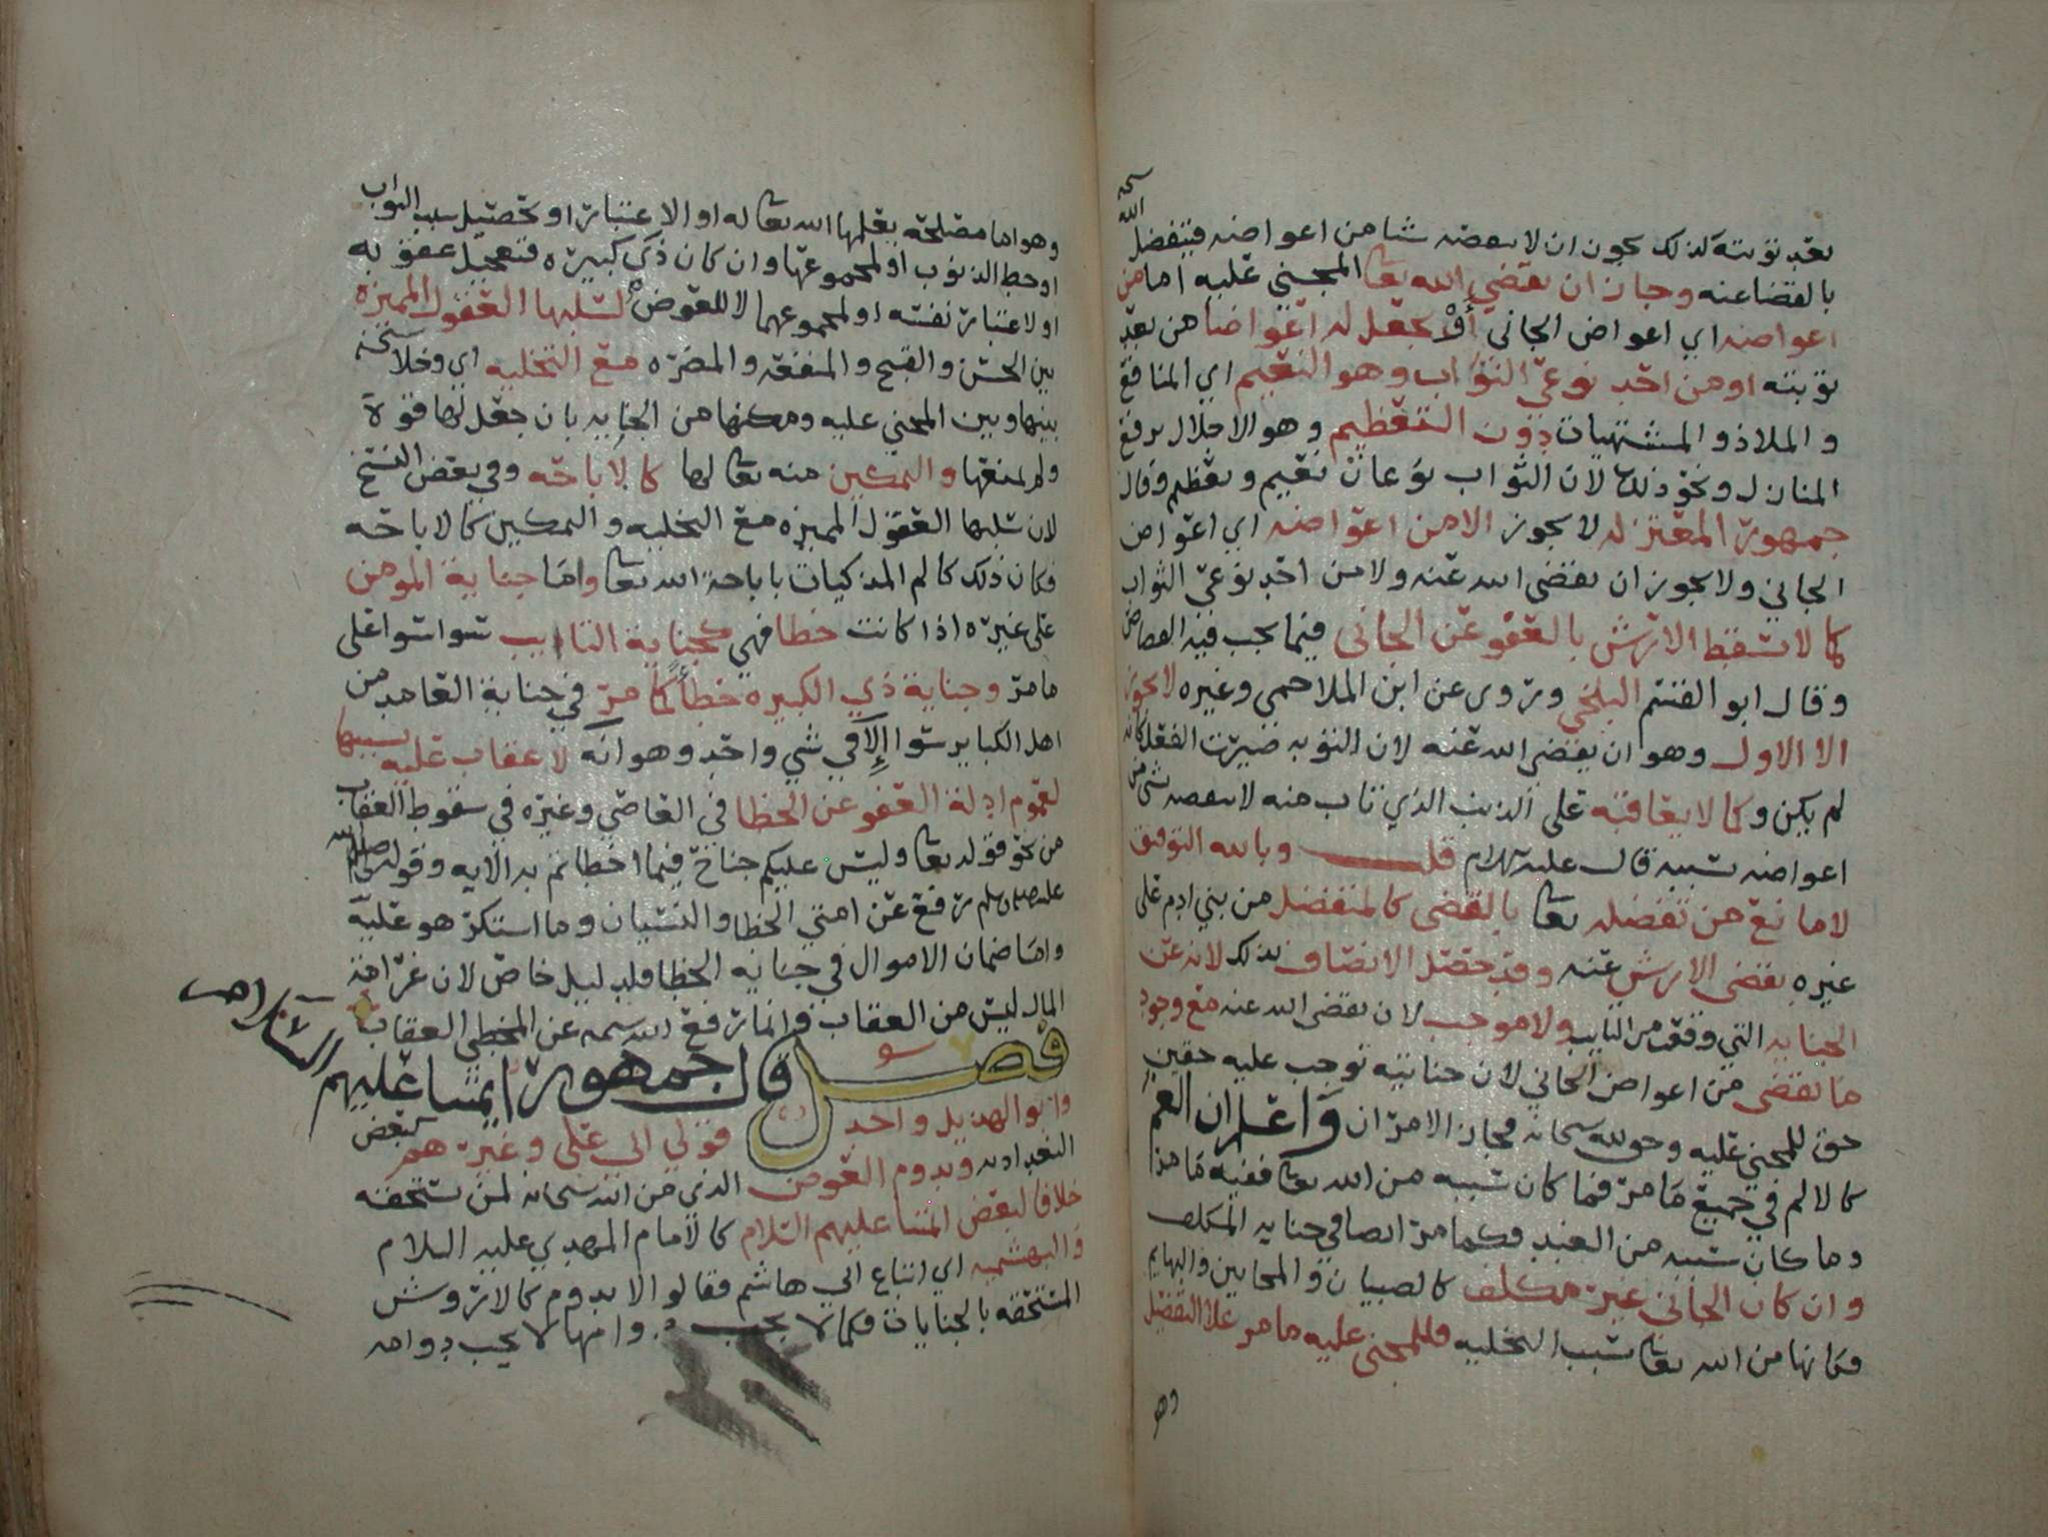 بعد توبته كذلك يجوز ان لا ينقصه شيا من اعواضه فيتفضل الله
بالقضا عنه وجاز ان يقضي الله تعا المجني عليه اما من
اعواضه اي اعواض الجاني أو يجعل له اعواضا من بعد
توبته او من احد نوعي الثواب وهو النعيم اي المنافع
والملاذ والمشتهيات دون التعظيم وهو الاجلال برفع
المنازل ونحو ذلك لان الثواب نوعان نعيم وتعظيم وقال
جمهور المعتزله لا يجوز الا من اعواضه اي اعواض
الجاني ولا يجوز ان يقضي الله عنه ولا من احد نوعي الثواب
كما لا يسقط الارش بالعفو عن الجاني فيما يجب فيه القصاص
وقال ابو القسم البلخي وتروى عن ابن الملاحمي وغيره لا يجوز
الا الاول وهو ان يقضي الله عنه لان التوبه صيرت الفعل كانه
لم يكن وكما لا يعاقبه على الذنب الذي تاب منه لا ينقصه شي من
اعواضه بسببه قال عليه السلام قلت وبالله التوفيق
لا مانع من تفضله تعا بالقضى كالمتفضل من بني ادم على
غيره بقضى الارش عنه وقد حصل الانصاف بذلك لانه عن
الجنايه التي وقعت من التايب ولا موجب لان يقضى الله عنه مع وجود
ما يقضى من اعواض الجاني لان جنايته توجب عليه حقين
حق للمجني عليه وحق لله سبحانه فجاز الامران واعلم ان الغم
كالالم في جميع ما مر فما كان سببه من الله تعا ففيه ما مر
وما كان سببه من العبد فكما مر ايضا في جنايه المكلف
وان كان الجاني غير مكلف كالصبيان والمجانين والبهايم
فكانها من الله تعا بسبب التخليه فللمجني عليه ما مر على التفصيل
وهو
وهو اما مصلحه يعلمها الله تعا له او الاعتبار او تحصيل سبب الثواب
او حط الذنوب او لمجموعها وان كان ذي كبيره فتعجيل عقوبه
او لاعتبار نفسه او لمجموعهما لا للعوض لسلبها العقول المميزه
بين الحسن والقبيح والمنفعه والمضره مع التخليه اي وخلا
بينها وبين المجني عليه ومكنها من الجنايه بان جعل لها قوة
ولم يمنعها والتمكين منه تعا لها كالاباحه وفي بعض النسخ
لان سلبها العقول المميزه مع التخليه والتمكين كالاباحه
فكان ذلك كالم المذكيات باباحة الله تعا واما جناية المومن
على غيره اذا كانت خطا فهي كجناية التايب سوا سوا على
ما مر وجناية ذي الكبيره خطأ كما مر في جناية العامد من
اهل الكباير سوا إلا في شي واحد وهو انه لا عقاب عليه بسببها
لعموم ادلة العفو عن الخطا في العاصي وغيره في سقوط العقاب
من نحو قوله تعا وليس عليكم جناح فيما اخطاتم به الايه وقوله
رفع عن امتي الخطا والنسيان وما استكرهو عليه
واما ضمان الاموال في جنايه الخطا فلدليل خاص لان غرامة
المال ليس من العقاب وانما رفع الله سبحنه عن المخطي العقاب
فصل قال جمهور ايمتنا عليهم السلام
وابو الهذيل واحد قولي ابي علي وغيرهم كبعض
البغداديه ويدوم العوض الذي من الله سبحانه لمن يستحقه
خلافا لبعض ايمتنا عليهم السلام كالامام المهدي عليه السلام
والبهشميه اي اتباع ابي هاشم فقالوا لا يدوم كالاروش
المستحقه بالجنايات فكما لا يجب دوامها لا يجب دوامه